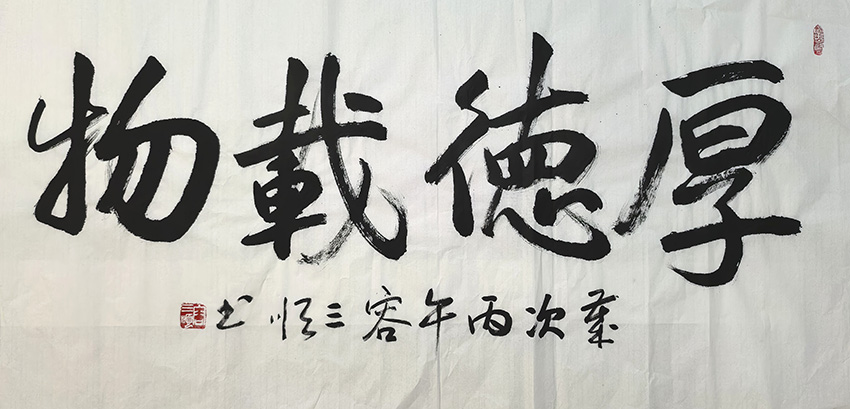 厚德載物
歲次丙午容三順书